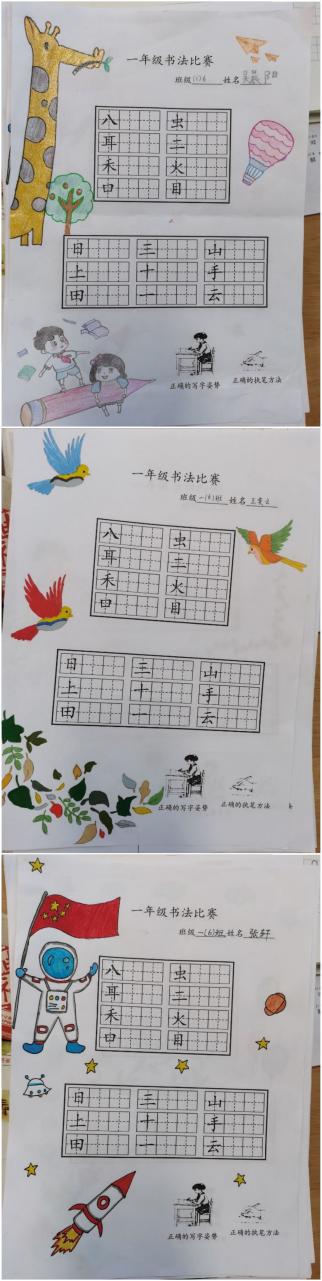 一年级书法比赛
班级(1)6 姓名
八 虫
耳 二
禾 火
口 目
日 三 山
上 十 手
田 一 云
正确的写字姿势 正确的执笔方法
一年级书法比赛
班级一(6)班 姓名
八 虫
耳 二
禾 火
口 目
日 三 山
上 十 手
田 一 云
正确的写字姿势 正确的执笔方法
一年级书法比赛
班级一(6)班 姓名张轩
八 虫
耳 二
禾 火
口 目
日 三 山
上 十 手
田 一 云
正确的写字姿势 正确的执笔方法